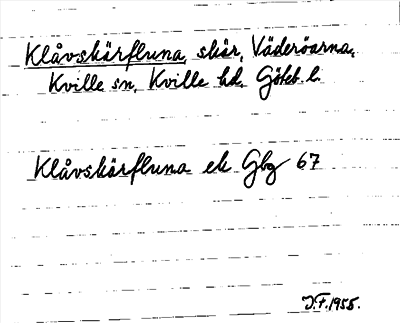 Klåvskärfluna, skär, Väderöarna,
Kville sn, Kville hd, Göteb. l.
Klåvskärfluna ek Gbg 67
J.F. 1955.